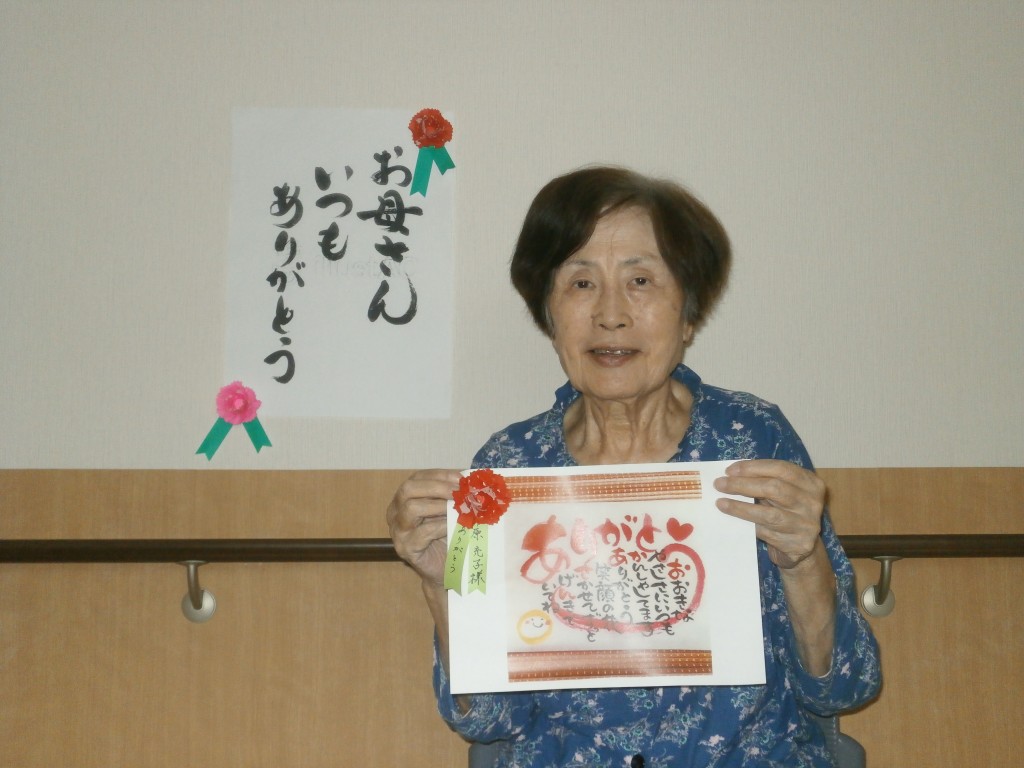 お母さん
いつも
ありがとう
ありがと
おおきな
やさしさにいつも
かんしゃしてます
ありがとう
笑顔の
げんきで
いてね
原光子様
ありがとう